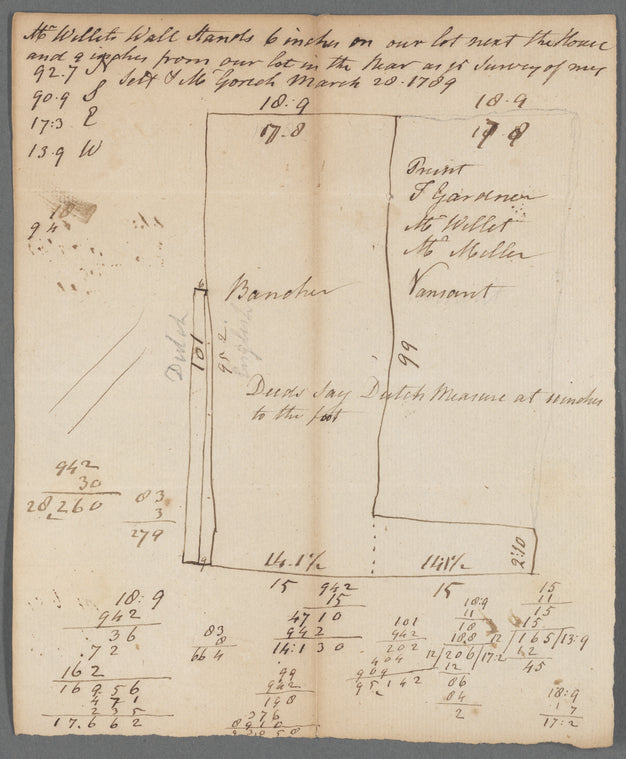 Mr Willets Wall Stands 6 inches on our lot next the House
and 2 inches from our lot in the Rear as pr Survey of
Mr March 28-1789
92.7 N
90.9 S
17:3 E
13.9 W
18
94
18:9
18.9
17.8
17 8
Print
T Gardner
Mr Willet
Mr Miller
Vansant
Bancker
Dutch
101
95 2
English
99
Deeds Say Dutch Measure at 11 inches
to the foot
942
30
28,260
83
3
279
9
14.1½
14.1½
2:10
15
15
18:9
942
36
.72
162
16956
471
235
17.662
83
8
664
942
15
4710
942
14:130
99
942
198
376
8910
101
942
202
404
909
95142
18:9
11
18
18.8
12/206/17:2
12
86
84
2
15
11
15
15
12/165/13:9
12
45
18:9
17
17:2